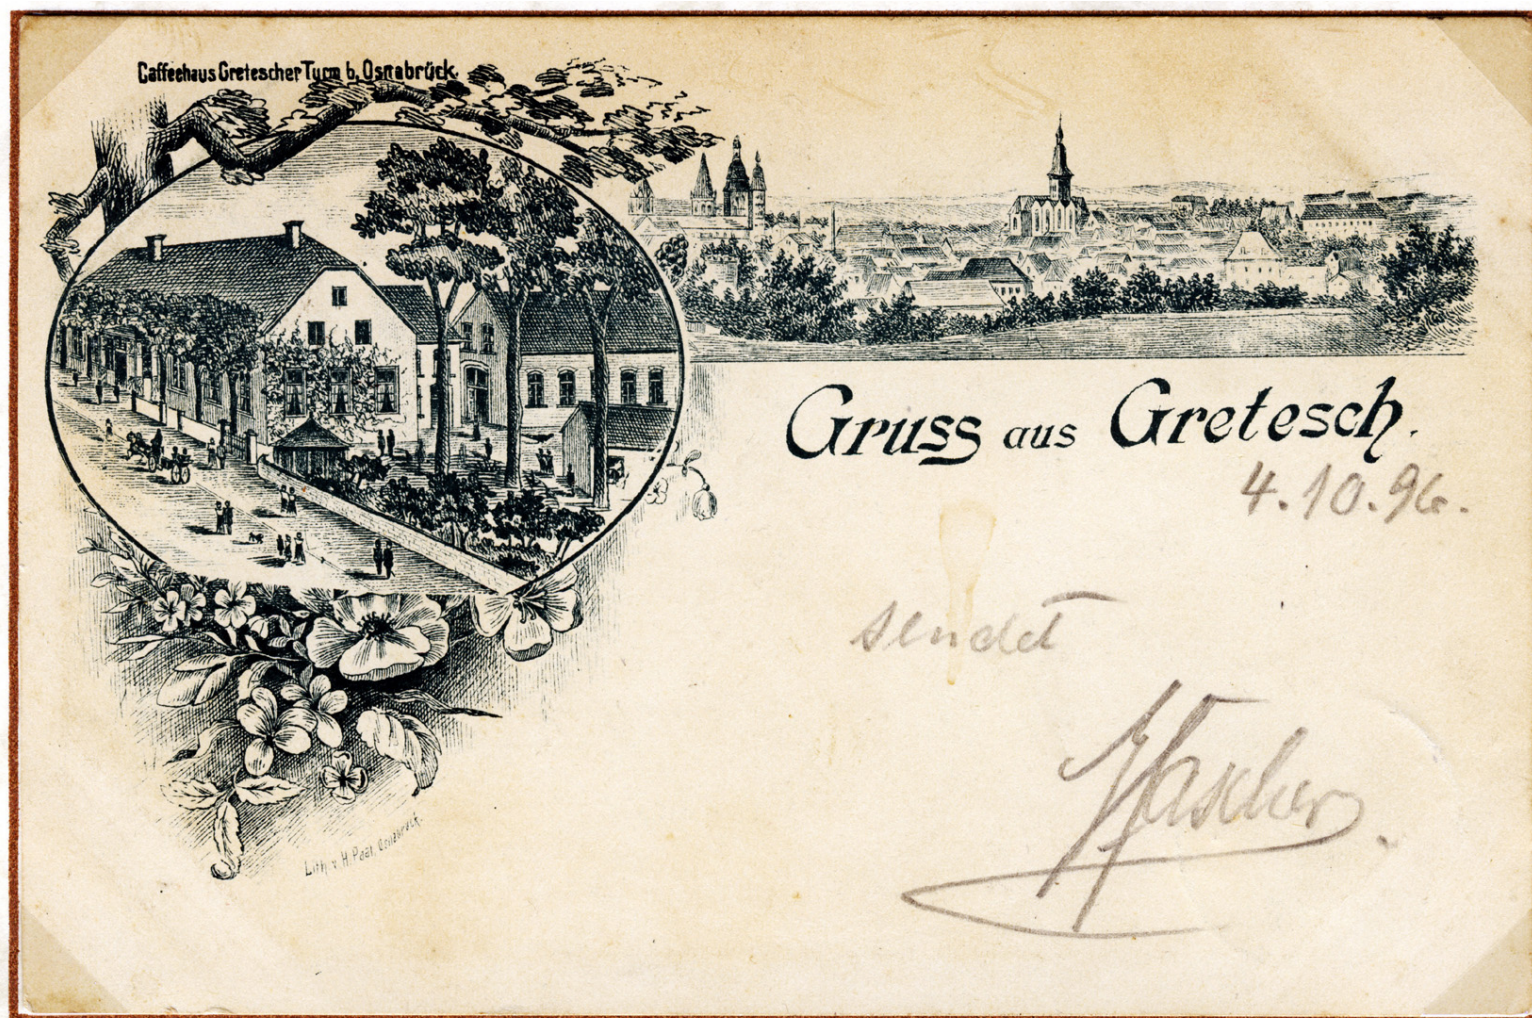 Caffeehaus Gretescher Turm b. Osnabrück.
Gruss aus Gretesch.
4.10.96.
sendet
Lith. v. H. Paal, Osnabrück.